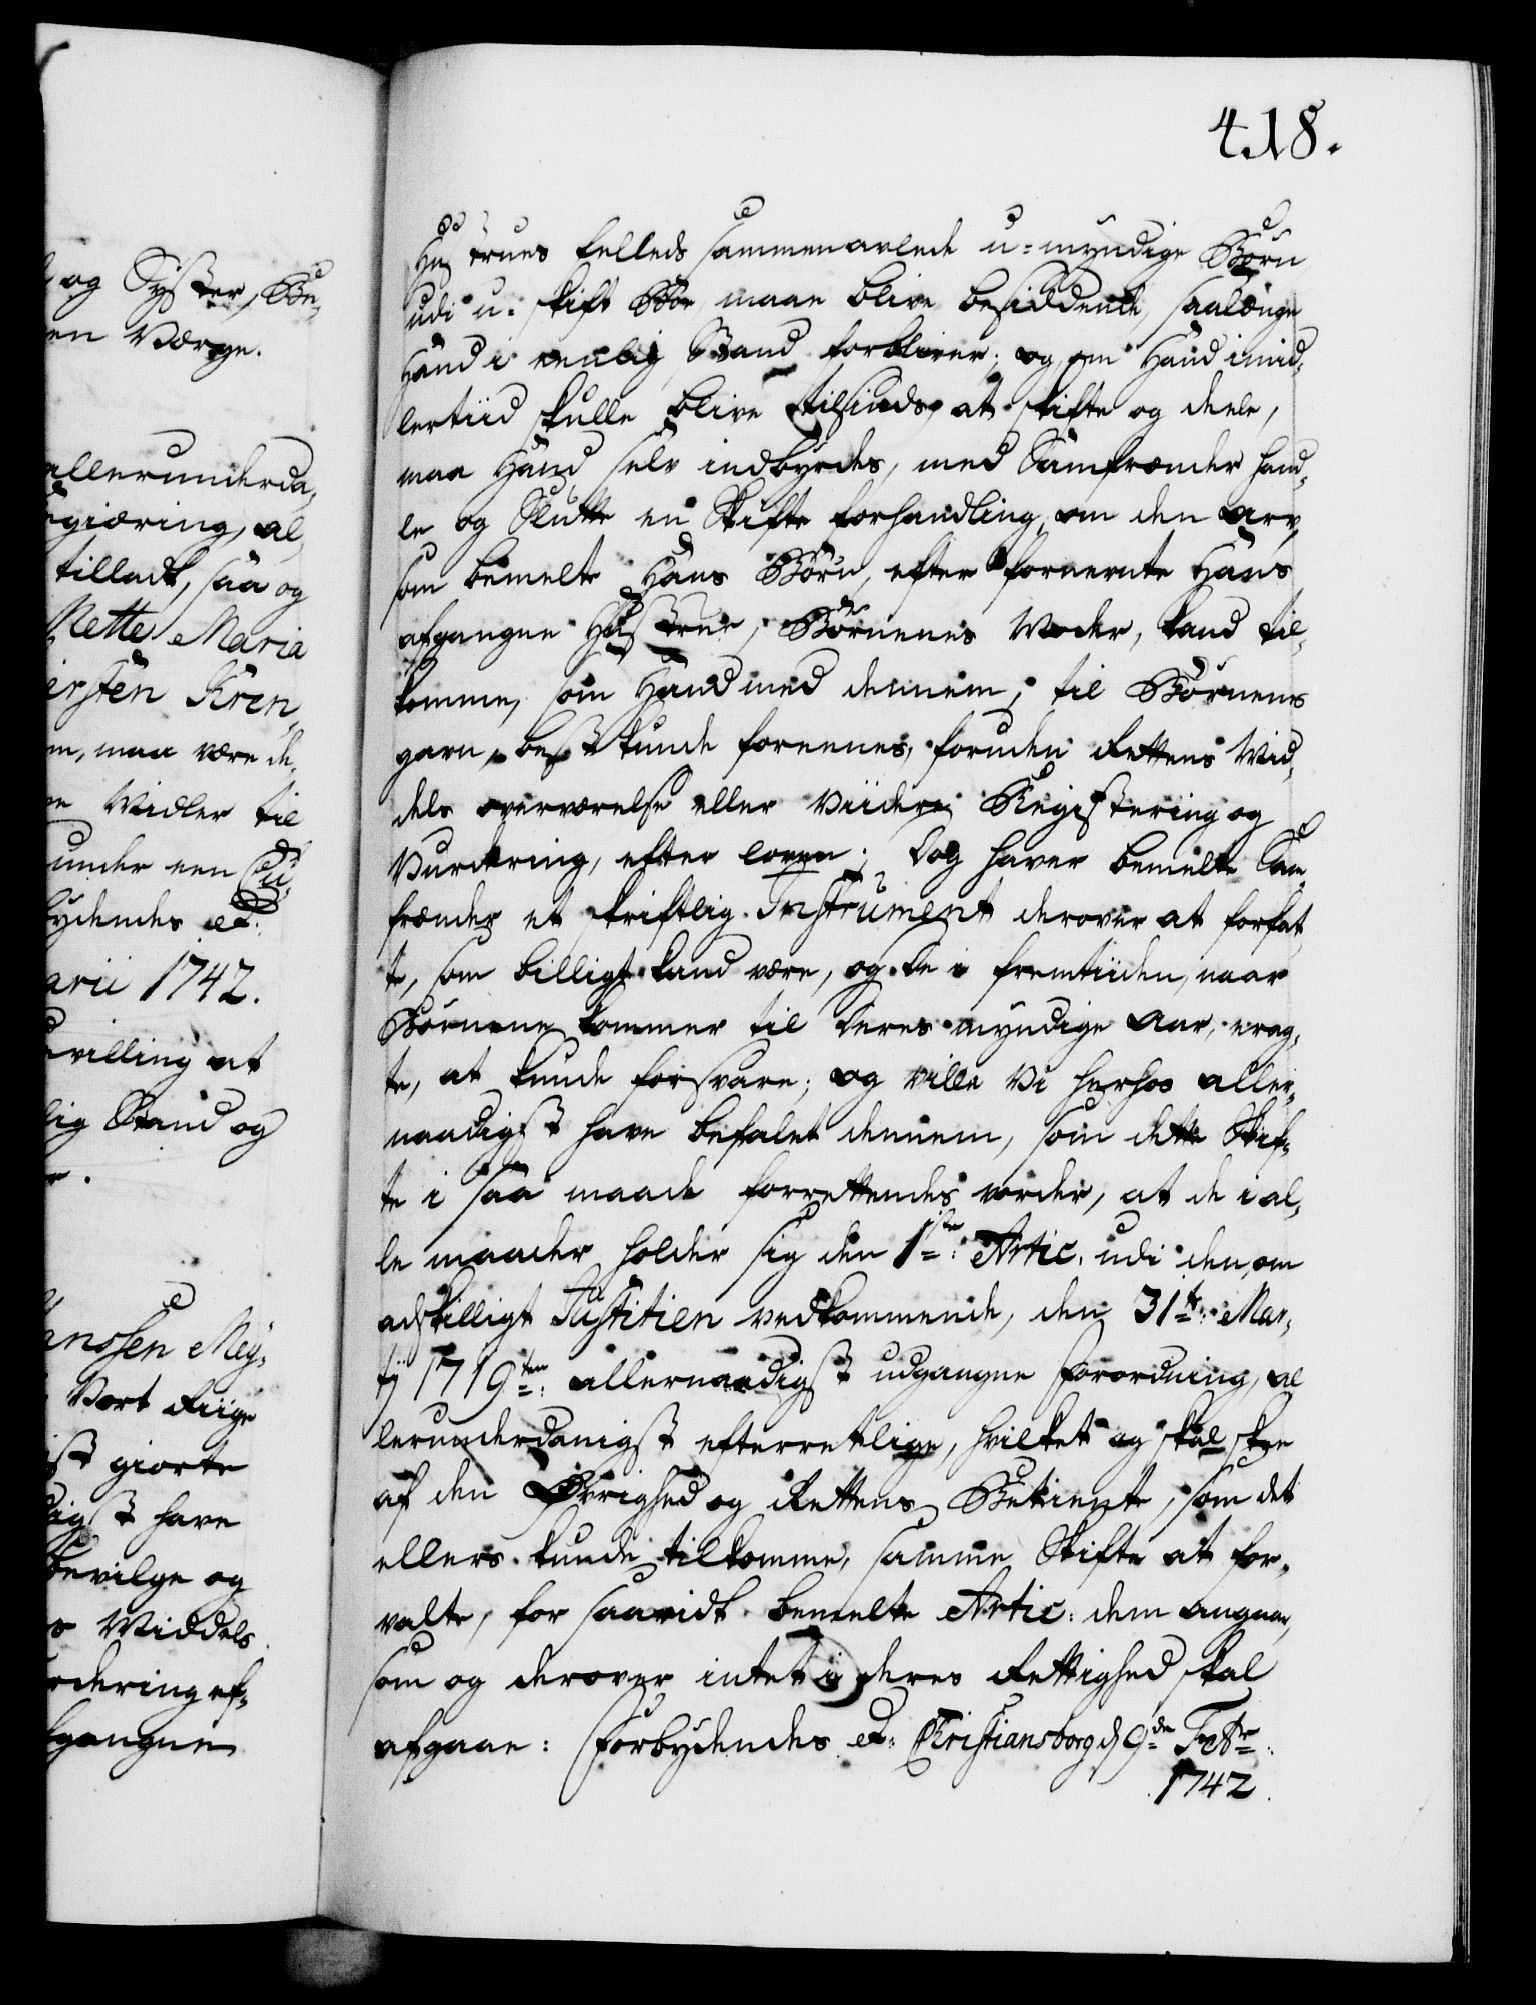 418.
og Syster, Be-
en Værge.
allerunderda-
giæring, al
tilladt, saa og
Mette Maria
ersten Sten,
m, maa være de,
e Midler til
under een Cu-
bydendes &.
arii 1742.
villing at
lig Stand og
anssen Mey-
Vort Riige
st giorte
digst have
bevilge og
s Middels
rdering ef-
gangne
Hustrues fælleds sammenavlede u-myndige Børn
udi u-skift Boe maae blive besiddende, saalænge
Hand i eenlig Stand forbliver; og om Hand imid-
lertiid skulle blive tilsinds, at skifte og deele,
maa Hand selv indbyrdes, med Samfrænder hand-
le og Slutte en Skifte forhandling, om den arv,
som bemelte Hans Børn, efter fornevnte Hans
afgangne Hustrue, Børnenes Moder, kand til-
komme, som Hand med dennem, til Børnens
gavn, best kunde foreenes, foruden Rettens Mid-
dels overværelse eller Viidere Registering og
Vurdering, efter loven; Dog haver bemelte Sam-
frænder et skriftlig Instrument derover at forfat-
te, som billigt kand være, og de i fremtiiden, naar
Børnene kommer til deres myndige Aar, erag-
te, at kunde forsvare; og ville Vi herhos aller-
naadigst have befalet dennem, som dette Skif-
te i saa maade forrettendes vorder, at de i al-
le maader holder sig den 1ste Artic. udi den, om
adskilligt Justitien vedkommende, den 31te Mar-
tij 1719ten allernaadigst udgangne forordning, al
lerunderdanigst efterretlige, hvilket og skal skee
af den Øvrighed og Rettens Betiente, som det
ellers kunde tilkomme, samme Skifte at for-
valte, for saavidt bemelte Artic: dem angaar,
som og derover intet i deres Rettighed skal
afgaae: Forbydendes &. Christiansborg d 9de Febr:
1742.